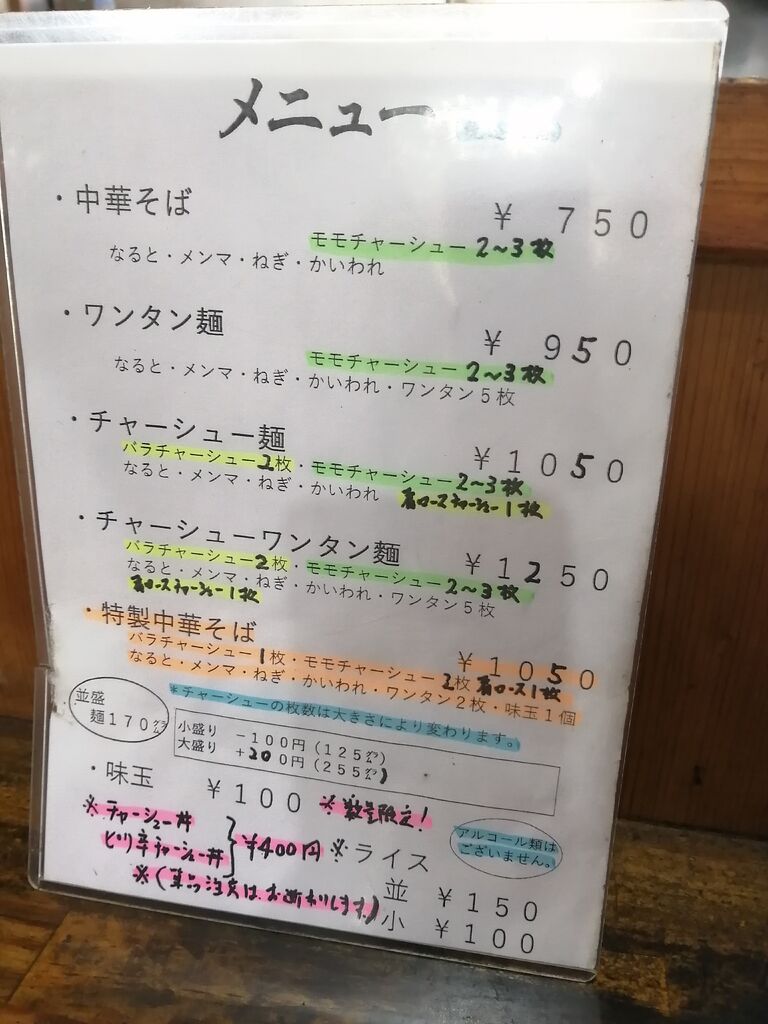 メニュー
・中華そば ￥ 750
モモチャーシュー 2～3枚
なると・メンマ・ねぎ・かいわれ
・ワンタン麺 ￥ 950
モモチャーシュー 2～3枚
なると・メンマ・ねぎ・かいわれ・ワンタン5枚
・チャーシュー麺 ￥1050
バラチャーシュー2枚・モモチャーシュー2～3枚
なると・メンマ・ねぎ・かいわれ 肩ロースチャーシュー1枚
・チャーシューワンタン麺 ￥1250
バラチャーシュー2枚・モモチャーシュー2～3枚
なると・メンマ・ねぎ・かいわれ・ワンタン5枚
肩ロースチャーシュー1枚
・特製中華そば ￥1050
バラチャーシュー1枚・モモチャーシュー2枚 肩ロース1枚
なると・メンマ・ねぎ・かいわれ・ワンタン2枚・味玉1個
*チャーシューの枚数は大きさにより変わります。
並盛
麺170グラム
小盛り －100円（125㌘）
大盛り ＋200円（255㌘）
・味玉 ￥100 ※数量限定!
※チャーシュー丼
ピリ辛チャーシュー丼 } ¥400円
※(単品注文はお断りします)
アルコール類は
ございません。
※ライス
並 ￥150
小 ￥100